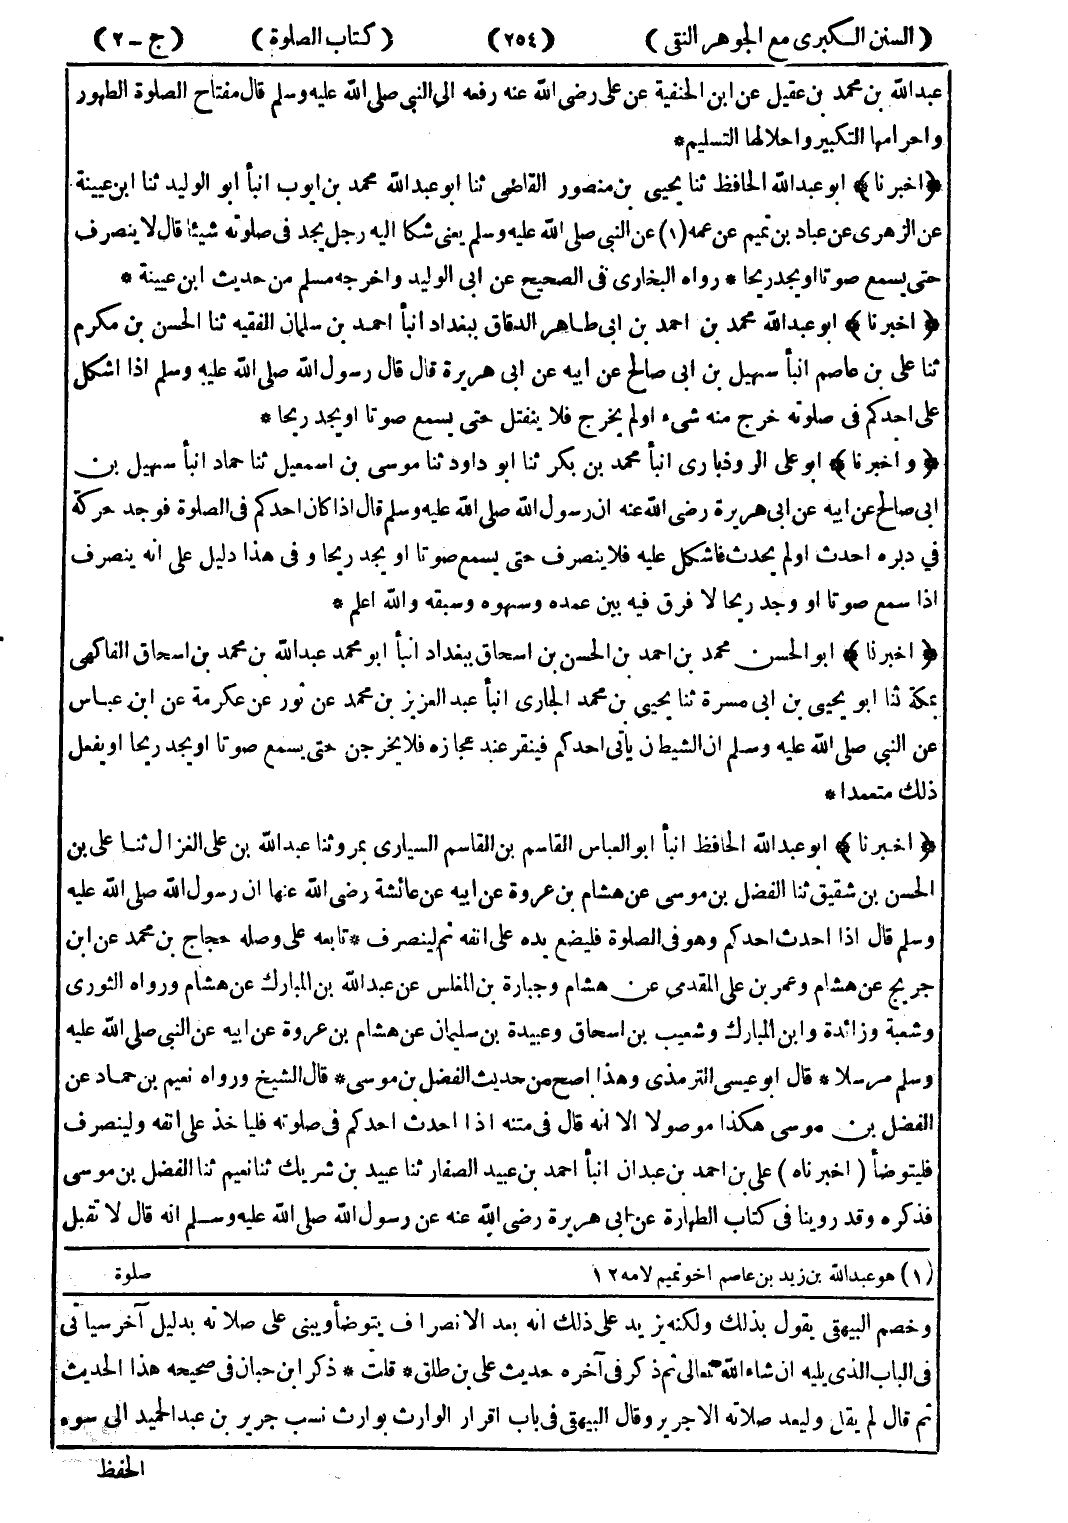 ( السنن الكبرى مع الجوهر النقى ) ( ٢٥٤ ) ( كتاب الصلوة ) ( ج - ٢ )
عبدالله بن محمد بن عقيل عن ابن الحنفية عن على رضى الله عنه رفعه الى النبي صلى الله عليه وسلم قال مفتاح الصلوة الطهور
واحرامها التكبير واحلالها التسليم *
﴿ اخبرنا ﴾ ابو عبدالله الحافظ ثنا يحيى بن منصور القاضى ثنا ابو عبدالله محمد بن ايوب انبأ ابو الوليد ثنا ابن عيينة
عن الزهرى عن عباد بن تميم عن عمه (١) عن النبي صلى الله عليه وسلم يعنى شكا اليه رجل يجد فى صلوته شيئا قال لا ينصرف
حتى يسمع صوتا او يجد ريحا * رواه البخارى فى الصحيح عن ابى الوليد واخرجه مسلم من حديث ابن عيينة *
﴿ اخبرنا ﴾ ابو عبدالله محمد بن احمد بن ابى طاهر الدقاق ببغداد انبأ احمد بن سلمان الفقيه ثنا الحسن بن مكرم
ثنا على بن عاصم انبأ سهيل بن ابى صالح عن ابيه عن ابى هريرة قال قال رسول الله صلى الله عليه وسلم اذا اشكل
على احدكم فى صلوته خرج منه شىء اولم يخرج فلا ينفتل حتى يسمع صوتا او يجد ريحا *
﴿ و اخبرنا ﴾ ابو على الروذبارى انبأ محمد بن بكر ثنا ابو داود ثنا موسى بن اسمعيل ثنا حماد انبأ سهيل بن
ابى صالح عن ابيه عن ابى هريرة رضى الله عنه ان رسول الله صلى الله عليه وسلم قال اذا كان احدكم فى الصلوة فوجد حركة
في دبره احدث اولم يحدث فاشكل عليه فلا ينصرف حتى يسمع صوتا او يجد ريحا و فى هذا دليل على انه ينصرف
اذا سمع صوتا او وجد ريحا لا فرق فيه بين عمده وسهوه وسبقه والله اعلم *
﴿ اخبرنا ﴾ ابو الحسن محمد بن احمد بن الحسن بن اسحاق ببغداد انبأ ابو محمد عبدالله بن محمد بن اسحاق الفاكهى
بمكة ثنا ابو يحيى بن ابى مسرة ثنا يحيى بن محمد الجارى انبأ عبد العزيز بن محمد عن ثور عن عكرمة عن ابن عباس
عن النبي صلى الله عليه وسلم ان الشيطان يأتى احدكم فينقر عند عجازه فلا يخرجن حتى يسمع صوتا او يجد ريحا او يفعل
ذلك متعمدا *
﴿ اخبرنا ﴾ ابو عبدالله الحافظ انبأ ابو العباس القاسم بن القاسم السيارى بمرو ثنا عبدالله بن على الغزال ثنا على بن
الحسن بن شقيق ثنا الفضل بن موسى عن هشام بن عروة عن ابيه عن عائشة رضى الله عنها ان رسول الله صلى الله عليه
وسلم قال اذا احدث احدكم وهو فى الصلوة فليضع يده على انفه ثم لينصرف * تابعه على وصله حجاج بن محمد عن ابن
جريج عن هشام وعمر بن على المقدمى عن هشام وجبارة بن المغلس عن عبدالله بن المبارك عن هشام ورواه الثورى
وشعبة وزائدة وابن المبارك وشعيب بن اسحاق وعبيدة بن سليمان عن هشام بن عروة عن ابيه عن النبي صلى الله عليه
وسلم مرسلا * قال ابو عيسى الترمذى وهذا اصح من حديث الفضل بن موسى * قال الشيخ ورواه نعيم بن حماد عن
الفضل بن موسى هكذا موصولا الا انه قال فى متنه اذا احدث احدكم فى صلوته فلياخذ على انفه ولينصرف
فليتوضأ ( اخبرناه ) على بن احمد بن عبدان انبأ احمد بن عبيد الصفار ثنا عبيد بن شريك ثنا نعيم ثنا الفضل بن موسى
فذكره وقد روينا فى كتاب الطهارة عن ابى هريرة رضى الله عنه عن رسول الله صلى الله عليه وسلم انه قال لا تقبل
(١) هو عبدالله بن زيد بن عاصم اخو تميم لامه ١٢ صلوة
وخصم البيهقى يقول بذلك ولكنه يزيد على ذلك انه بعد الانصراف يتوضأ ويبنى على صلاته بدليل آخر سيأتى
فى الباب الذى يليه ان شاء الله تعالى ثم ذكر فى آخره حديث على بن طلق * قلت * ذكر ابن حبان فى صحيحه هذا الحديث
ثم قال لم يقل وليعد صلاته الا جرير وقال البيهقى فى باب اقرار الوارث بوارث نسب جرير بن عبد الحميد الى سوء
الحفظ